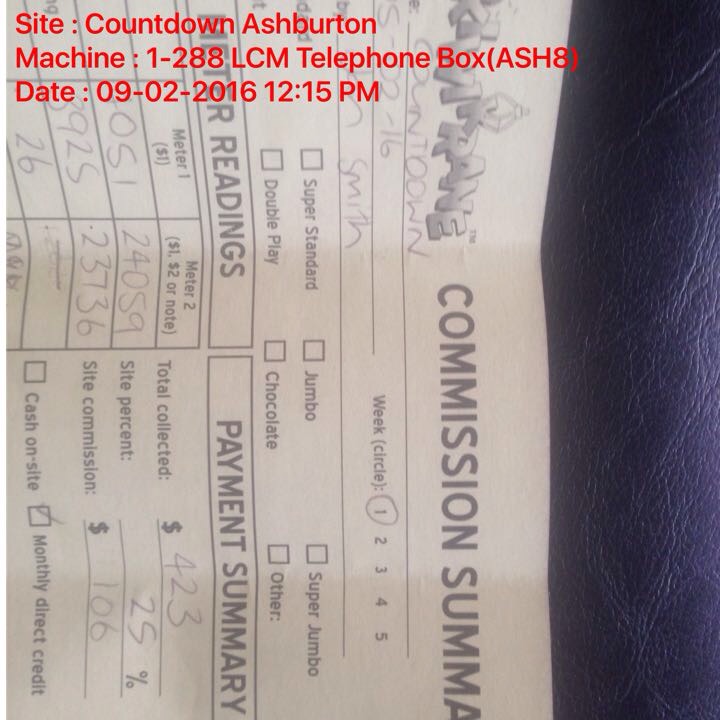 Site : Countdown Ashburton
Machine : 1-288 LCM Telephone Box(ASH8)
Date : 09-02-2016 12:15 PM
COMMISSION SUMMA
COUNTDOWN
Week (circle): 1 2 3 4 5
Smith
Super Standard
Jumbo
Super Jumbo
Double Play
Chocolate
Other:
R READINGS
PAYMENT SUMMARY
Meter 1
($1)
Meter 2
($1, $2 or note)
051
24059
8925
23736
26
Total collected: $ 423
Site percent: 25 %
Site commission: $ 106
Cash on-site
Monthly direct credit